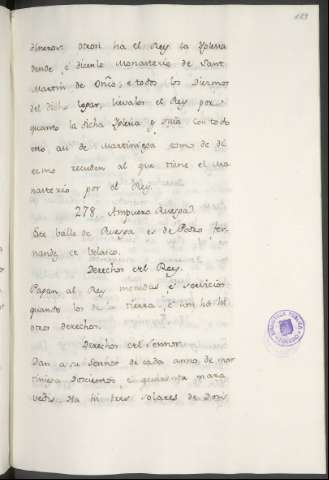 dineros. otrosi ha el Rey la Iglesia
dende, e dicenle Monasterio de Sant
Martin de Oriço, e todos los Diezmos
del dicho logar, lievalos el Rey por
quanto la dicha Iglesia es suia con todo
esto, asi de Martiniega como de di
ezmo recuden al que tiene el Mo
nasterio por el Rey.
278. Ampuero Ruesga.
Este valle de Ruesga es de Pedro Fer
nandez de Velasco.
Derechos del Rey.
Pagan al Rey monedas e servicios
quando los de la tierra, e non ha hi
otros derechos.
Derechos del Sennor.
Dan a su Sennor de cada anno de mar
tiniega Doscientos, e quarenta mara
vedis. Ha hi tres solares de Don